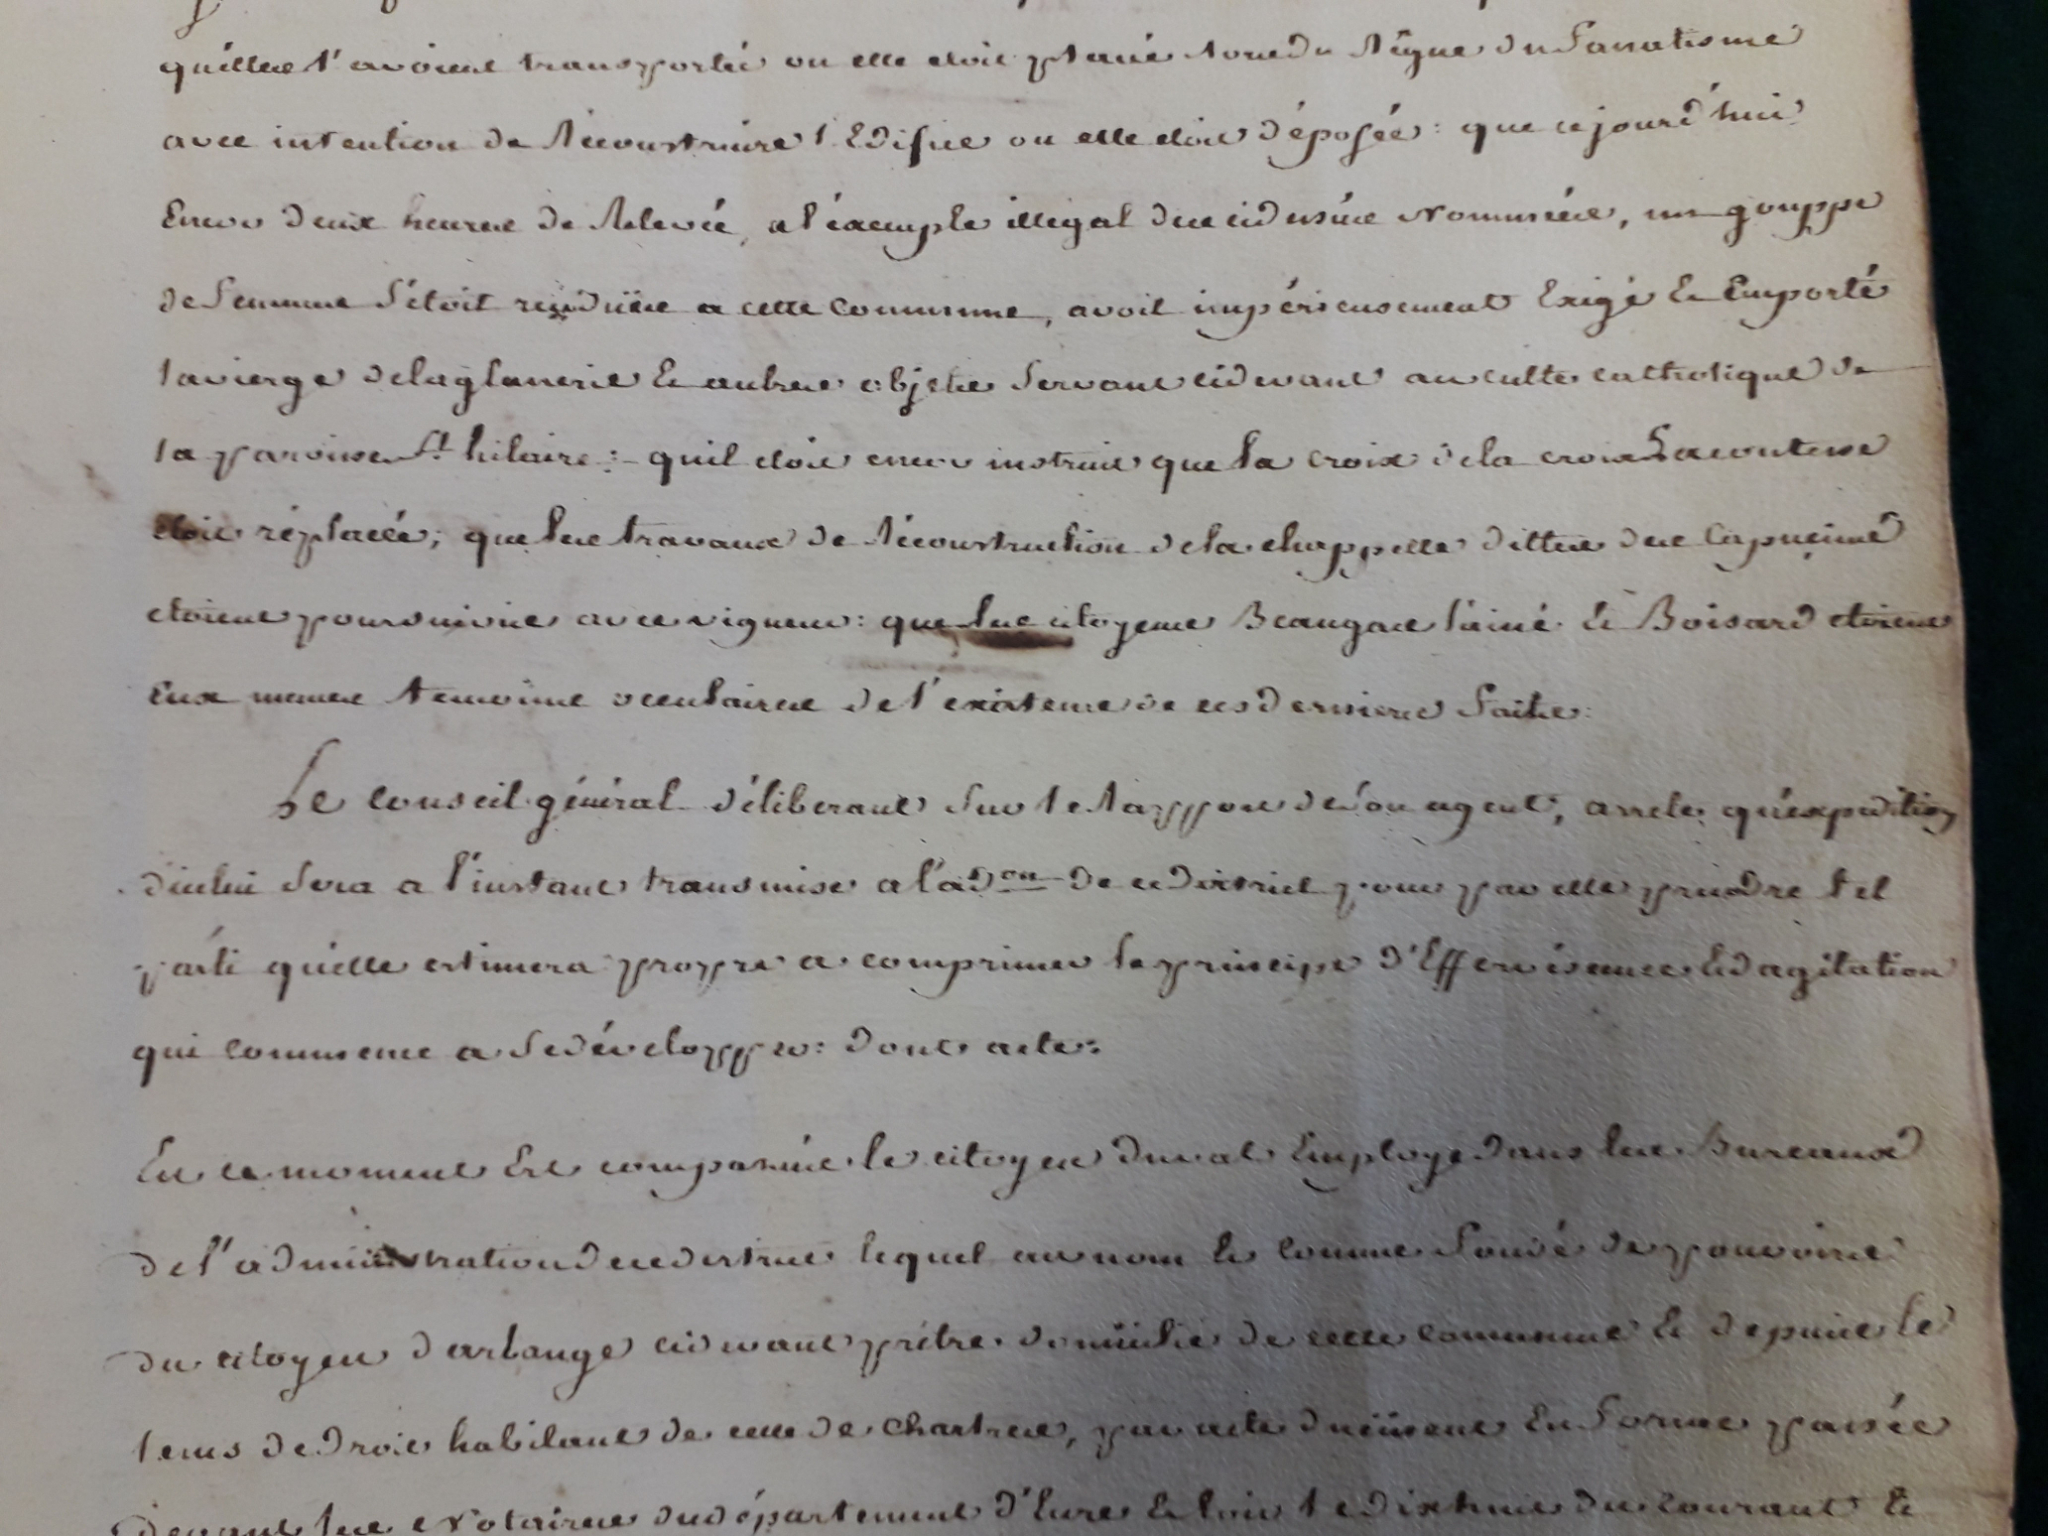 quelles l'avoient transportée ou elle étoit placée lors du Règne du fanatisme
avec intention de Réconstruire l'Edifice ou elle étoit déposée : que cejourd'hui
Environ deux heures de Relevée, a l'éxemple illégal des cidessus Nommées, un grouppe
de femmes s'étoit rendues a cette commune, avoit impérieusement Exigé Et Emporté
la vierge de la glanerie Et autres objets servant cidevant au culte catholique de
la paroisse St hilaire : quil étoit encor instruit que la croix de la croix
étoit réplacée ; que les travaux de Réconstruction de la chappelle dittes des Capucins
étoient poursuivis avec vigueur : que les citoyens Beaugas l'ainé Et Boisard étoient
Eux memes temoins occulaires de l'existence de ces derniers faits :
Le conseil général déliberant sur le Rapport de son agent, arrete qu'expedition
dicelui sera a l'instant transmise a l'adon de ce district pour par elle prendre tel
parti quelle estimera propre a comprimer le principe d'Effervésence Et d'agitation
qui commence a se développer : dont acte :
En ce moment Est comparu le citoyen duval Employé dans les Bureaux
de l'administration de ce district lequel au nom Et comme fondé de pouvoirs
du citoyen darlange cidevant prêtre domicilié de cette commune Et depuis le
tems de droit habitant de celle de Chartres, par acte duement En forme passée
devant les Notaires du département d'Eure Et loir le dixhuit du courant Et